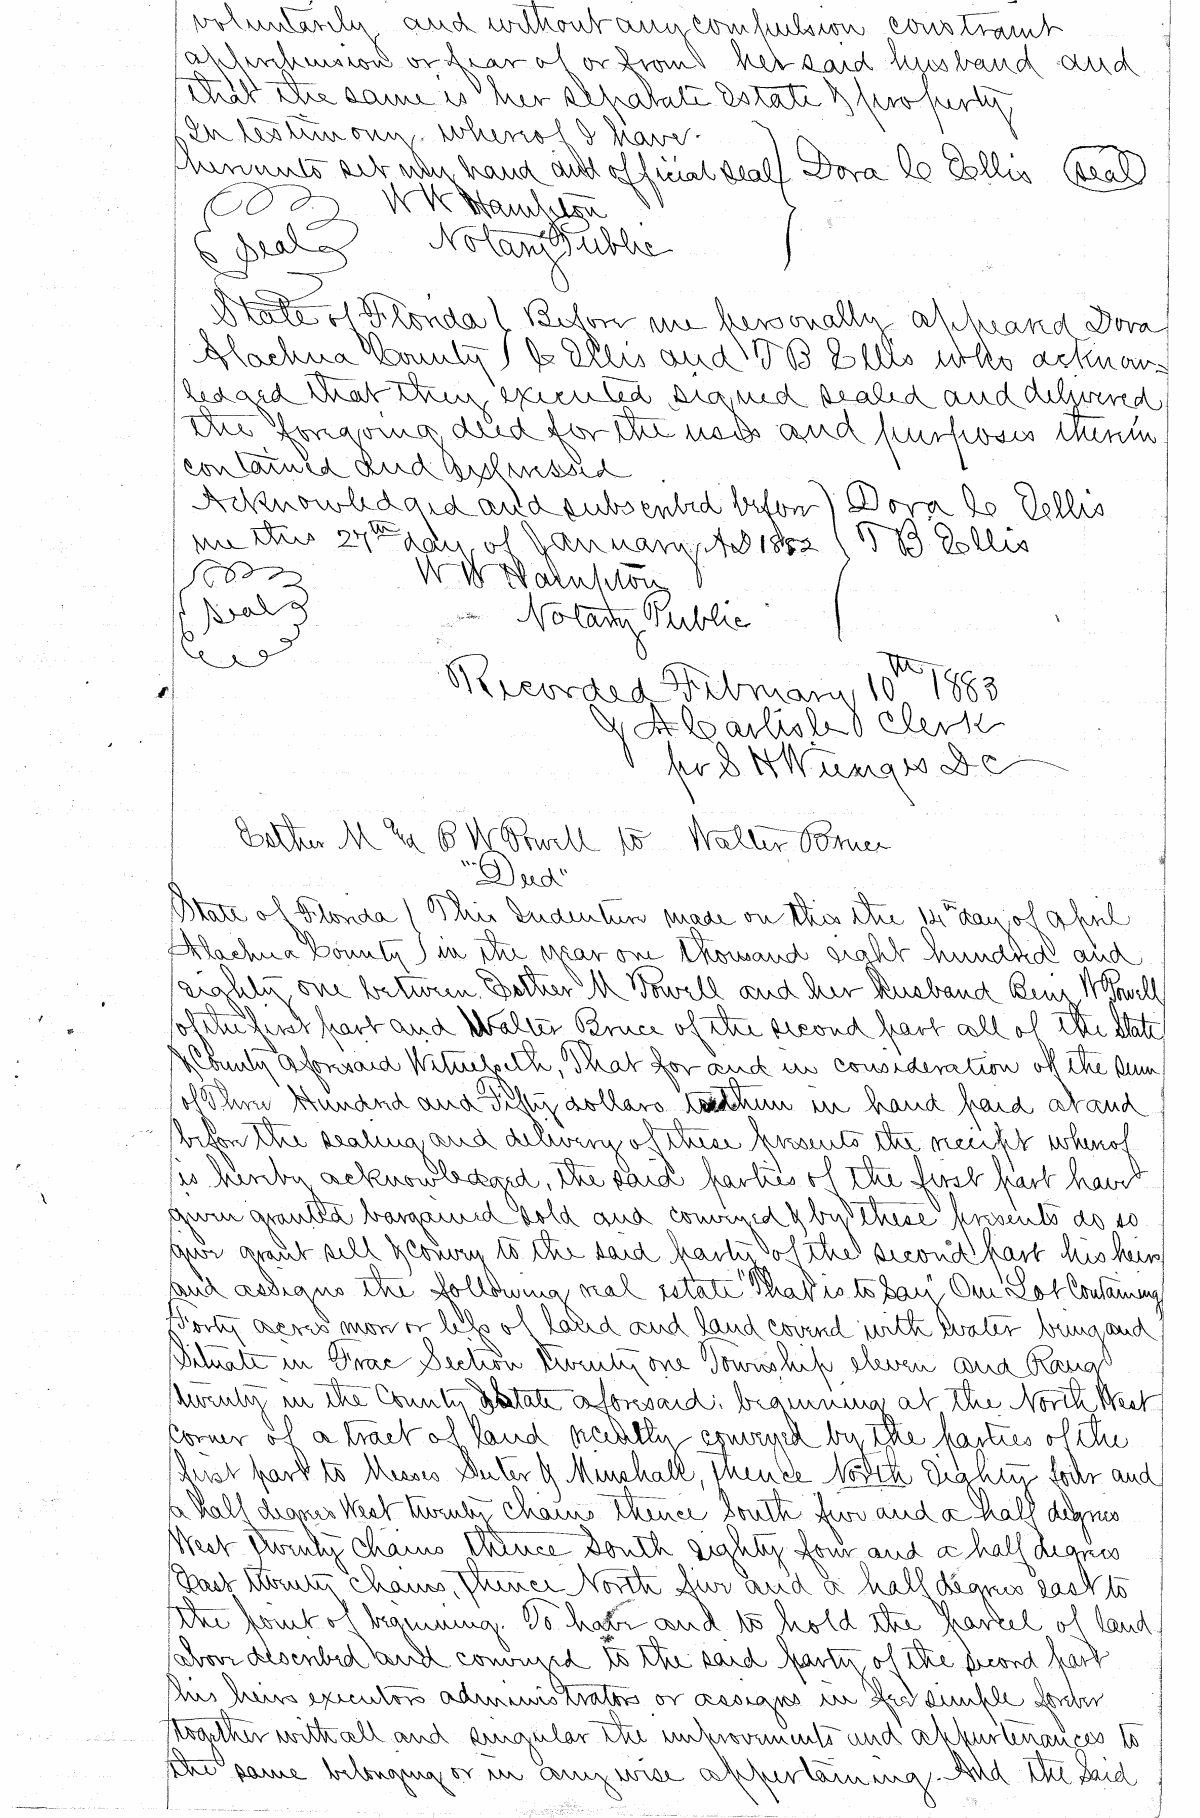 voluntarily and without any compulsion constraint
apprehension or fear of or from her said husband and
that the same is her separate Estate & property
In testimony whereof I have
hereunto set my hand and official seal } Dora C Ellis (seal)
W W Hampton
Seal Notary Public
State of Florida ( Before me personally appeared Dora
Alachua County ) C Ellis and T B Ellis who acknow=
ledged that they executed signed sealed and delivered
the foregoing deed for the uses and purposes therein
contained and expressed
Acknowledged and subscribed before ) Dora C Ellis
me this 27th day of January AD 1882 ( T B Ellis
W W Hampton
Seal Notary Public
Recorded February 10th 1883
J A Carlisle Clerk
pr S H Wienges D C
Esther M & B W Powell to Walter Bruce
"Deed"
State of Florida ( This Indenture made on this the 14th day of April
Alachua County ) in the year one thousand eight hundred and
eighty one between Esther M Powell and her husband Benj W Powell
of the first part and Walter Bruce of the second part all of the State
& County aforesaid Witnesseth, That for and in consideration of the sum
of Three Hundred and Fifty dollars to them in hand paid at and
before the sealing and delivery of these presents the receipt whereof
is hereby acknowledged, the said parties of the first part have
given granted bargained sold and conveyed & by these presents do so
give grant sell & convey to the said party of the second part his heirs
and assigns the following real estate "That is to Say" One Lot Containing
Forty acres more or less of land and land covered with water being and
Situate in Frac Section twenty one Township eleven and Range
twenty in the County & State aforesaid; beginning at the North West
corner of a tract of land recently conveyed by the parties of the
first part to Messes Suter & Minshall, thence North Eighty four and
a half degrees West twenty chains thence South five and a half degrees
West twenty chains thence South eighty four and a half degrees
East twenty chains, thence North five and a half degrees east to
the point of beginning. To have and to hold the parcel of land
above described and conveyed to the said party of the second part
his heirs executors administrators or assigns in fee simple forever
together with all and singular the improvements and appurtenances to
the same belonging or in any wise appertaining. And the Said